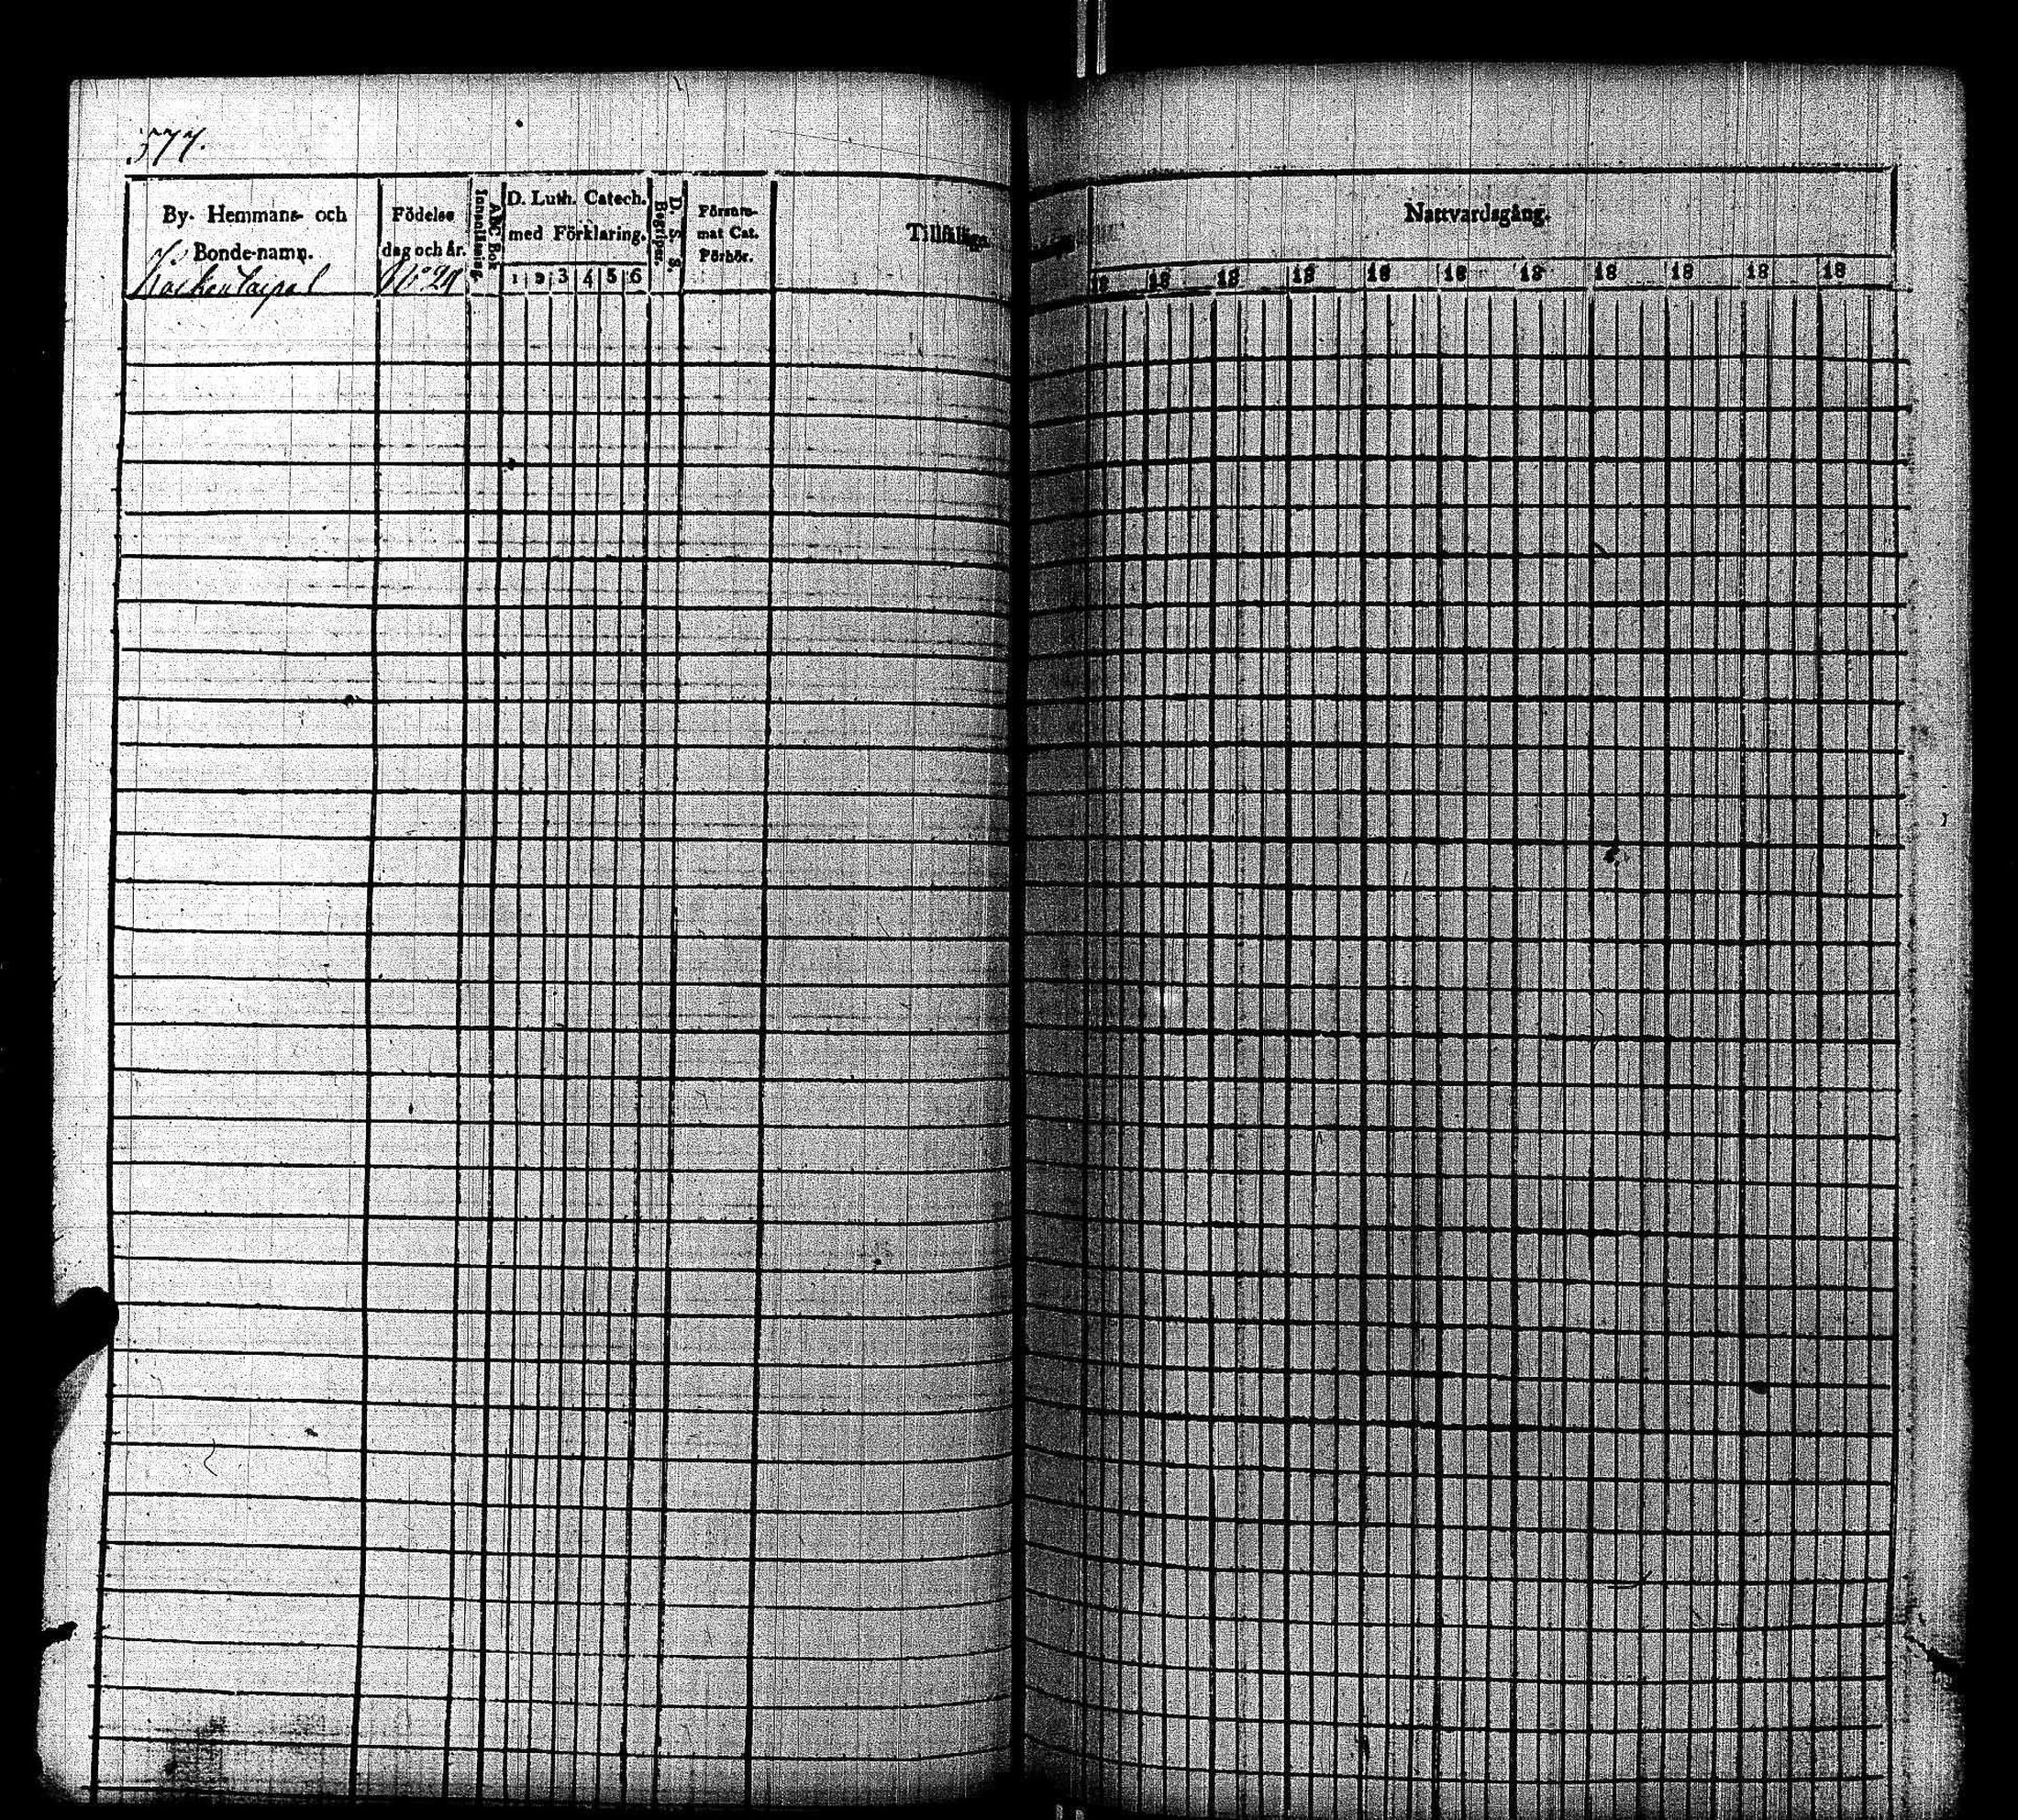 377.
By- Hemmans- och
Bonde-namn.
Födelse
dag och år.
No 29
Innanläsning.
ABC Bok
D. Luth. Catech.
med Förklaring.
1 2 3 4 5 6
Begriper.
D. S. S.
Försum-
mat Cat.
Förhör.
Nattvardsgång.
18 18 18 18 18 18 18 18 18 18 18